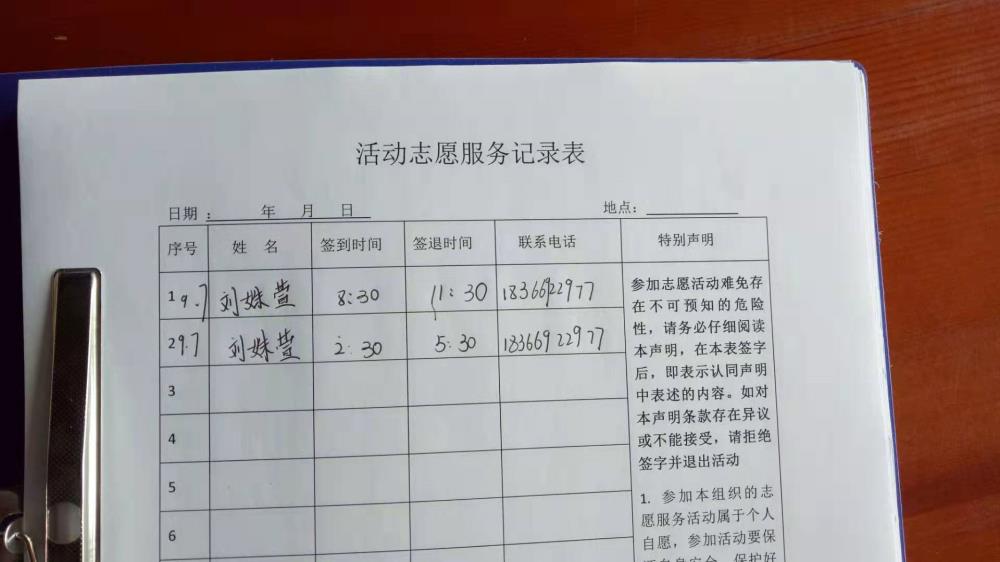 活动志愿服务记录表
日期：　　年　月　日　　地点：
序号 姓 名 签到时间 签退时间 联系电话 特别声明
1 9.7 刘姝萱 8:30 11:30 18366922977
2 9.7 刘姝萱 2:30 5:30 18366922977
3
4
5
6
参加志愿活动难免存
在不可预知的危险
性，请务必仔细阅读
本声明，在本表签字
后，即表示认同声明
中表述的内容。如对
本声明条款存在异议
或不能接受，请拒绝
签字并退出活动
1. 参加本组织的志
愿服务活动属于个人
自愿，参加活动要保